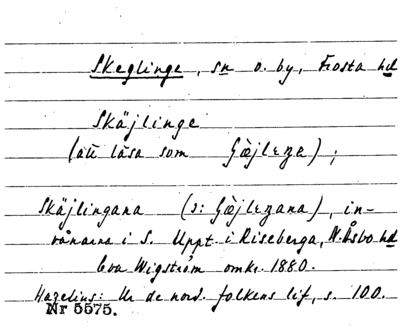 Skeglinge, sn o. by, Frosta hd
Skäjlinge
(att läsa som Gäjlɛŋa);
Skäjlingana (ɔ: Gäjlɛŋana), in-
vånarna i S. Uppt. i Riseberga, N. Åsbo hd
Eva Wigström omkr. 1880.
Hazelius: Ur de nord. folkens lif, s. 100.
Nr 5575.